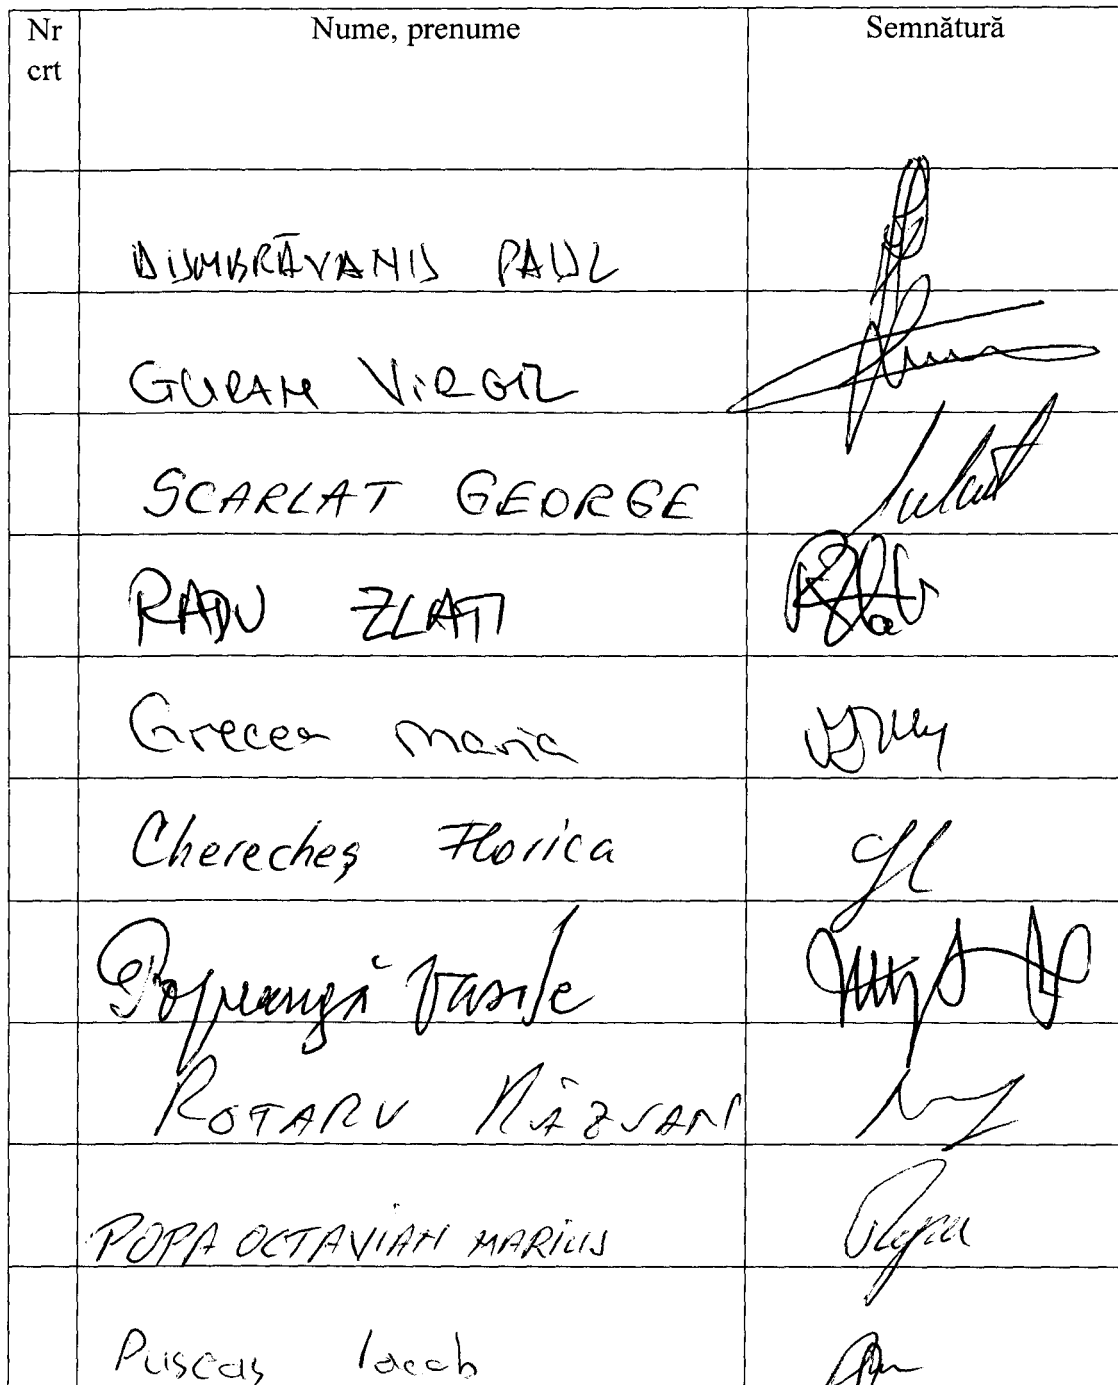 Nr Nume, prenume Semnătură
crt
DUMBRĂVANU PAUL
GURAN VIRGIL
SCARLAT GEORGE
RADU ZLATI
Grecea Maria
Cherecheș Florica
Popeangă Vasile
ROTARU RĂZVAN
POPA OCTAVIAN MARIUS
Puscas Iacob